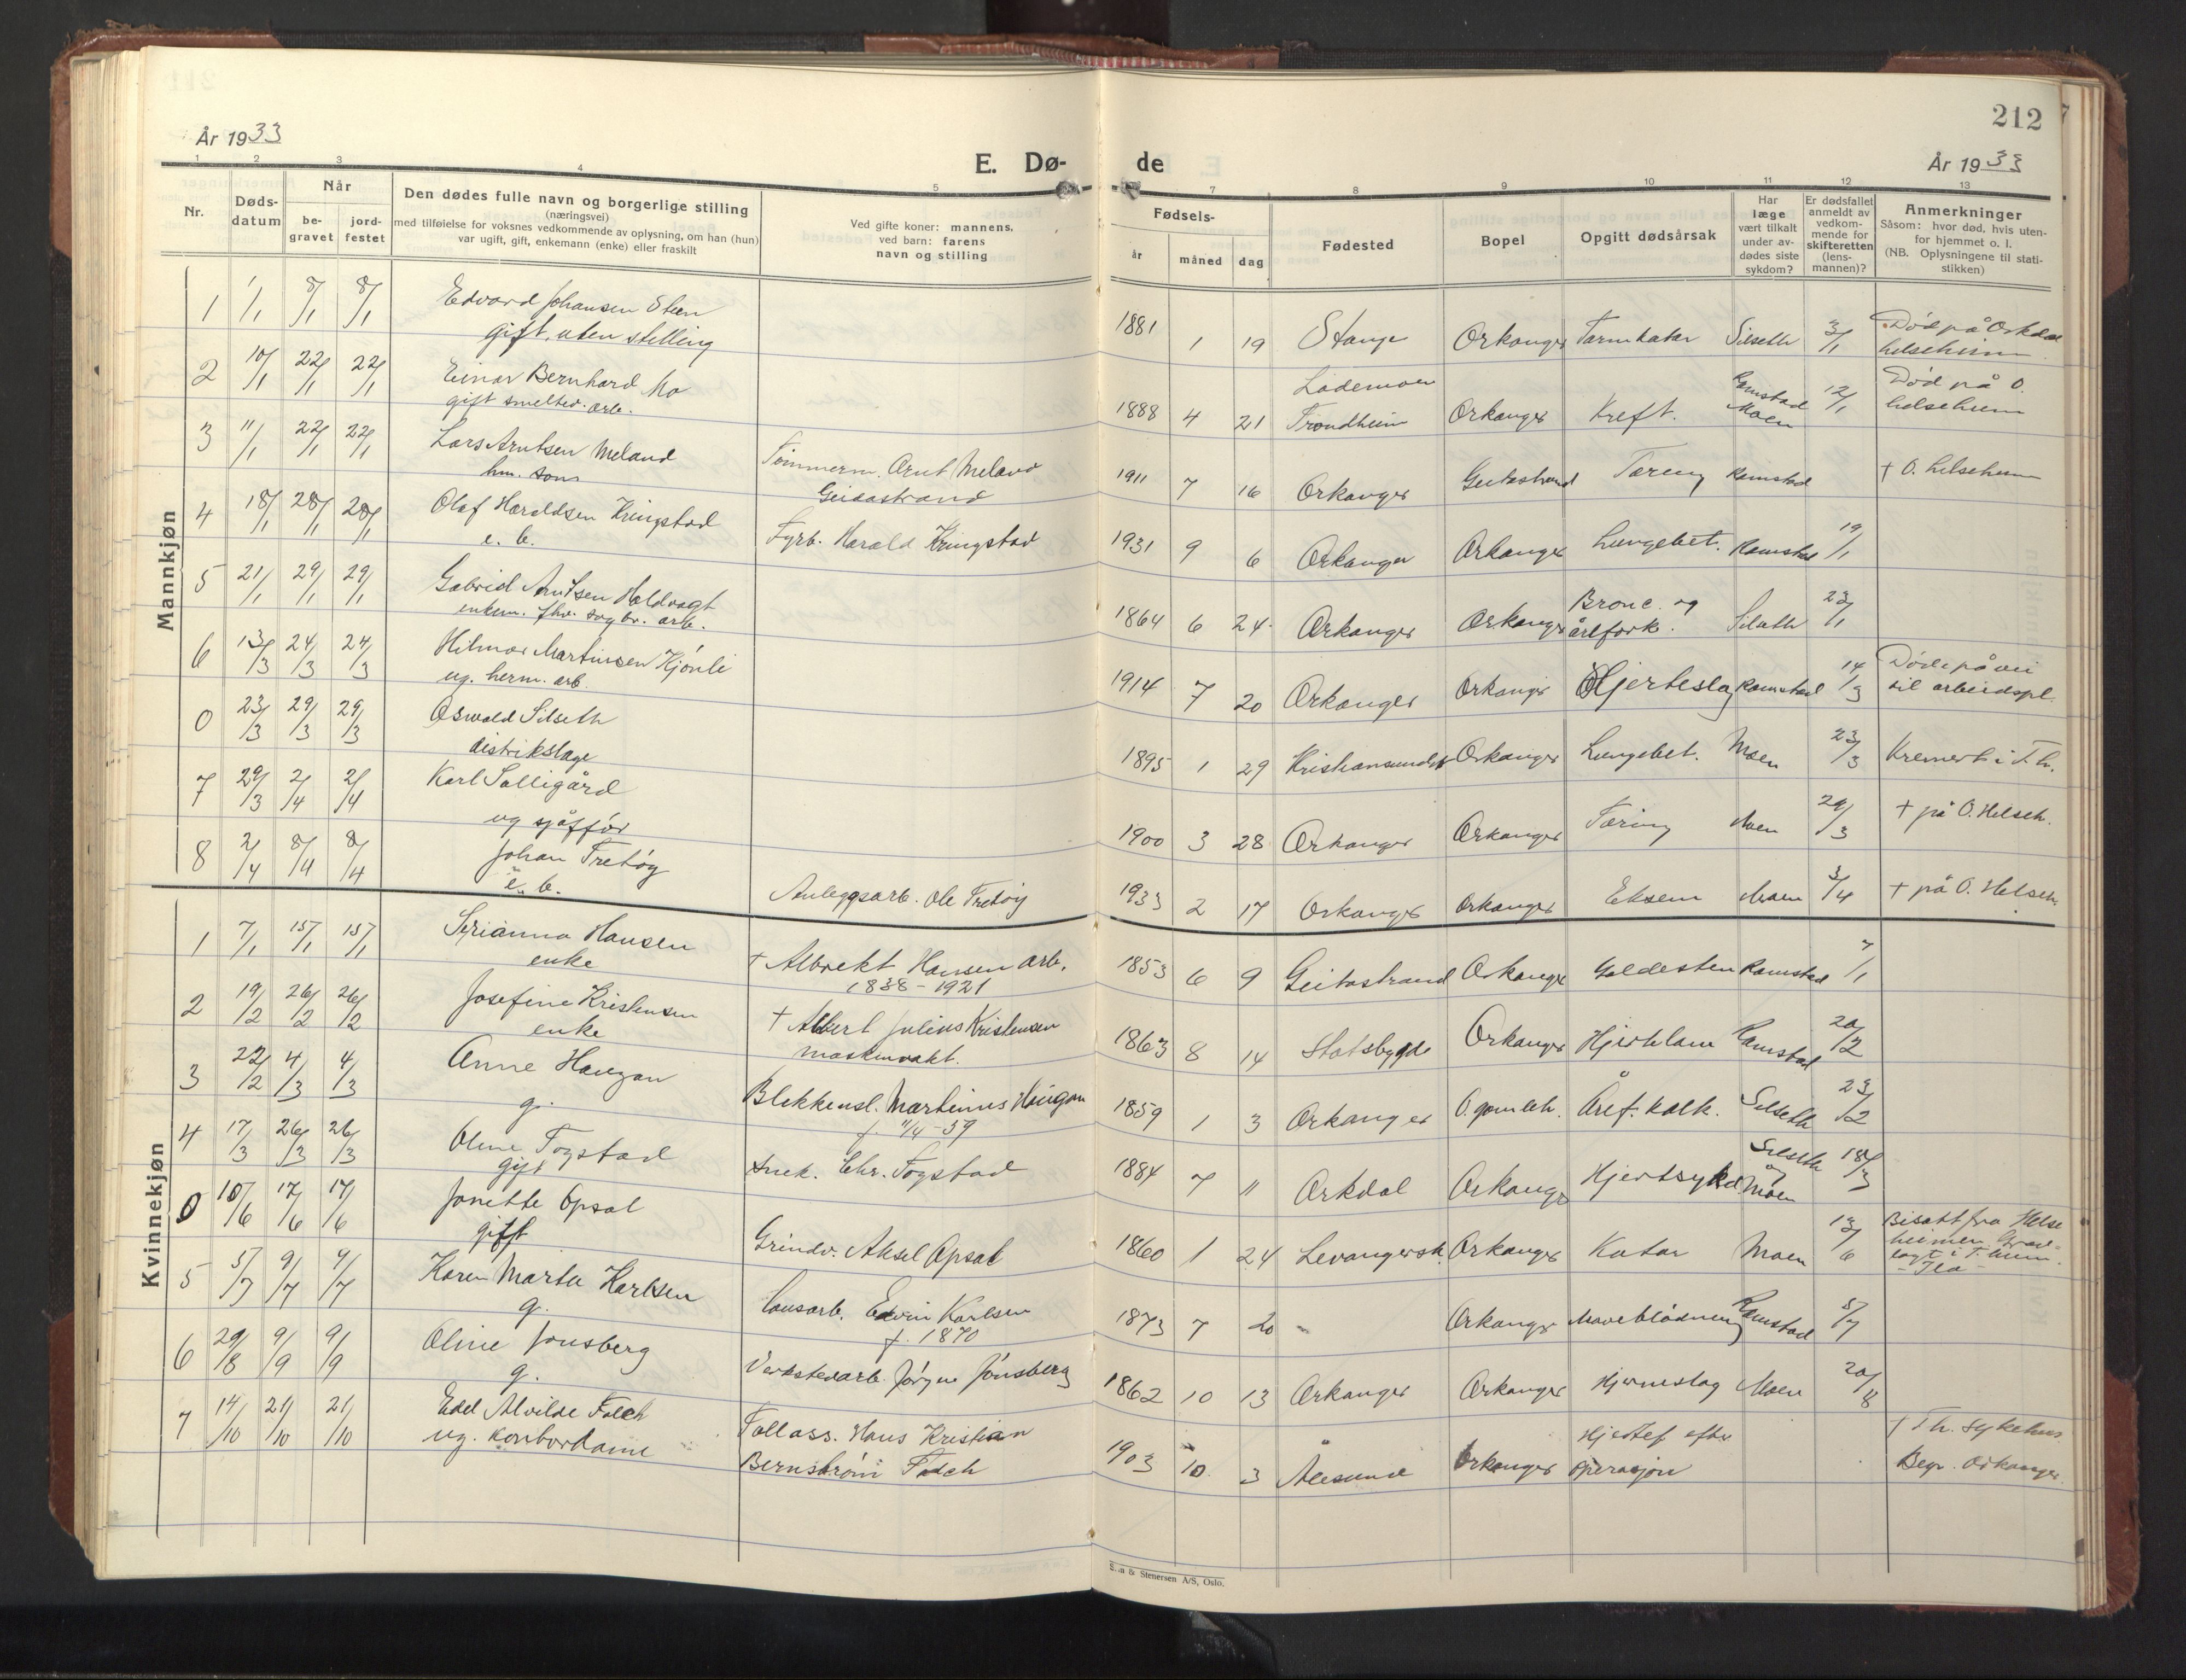 212
År 1933
E. Dø-
de
År 1933
1 2 3 4 5 7 8 9 10 11 12 13
Nr.
Døds-
datum
Når
be-
gravet
jord-
festet
Den dødes fulle navn og borgerlige stilling
(næringsvei)
med tilføielse for voksnes vedkommende av oplysning, om han (hun)
var ugift, gift, enkemann (enke) eller fraskilt
Ved gifte koner: mannens,
ved barn: farens
navn og stilling
Fødsels-
år
måned
dag
Fødested
Bopel
Opgitt dødsårsak
Har
læge
vært tilkalt
under av-
dødes siste
sykdom?
Er dødsfallet
anmeldt av
vedkom-
mende for
skifteretten
(lens-
mannen)?
Anmerkninger
Såsom: hvor død, hvis uten-
for hjemmet o. l.
(NB. Oplysningene til stati-
stikken)
Mannkjøn
1 1/1 8/1 8/1 Edvard Johansen Steen 1881 1 19 Stange Orkanger Tarmkatar Silseth 3/1 Død på Orkdal
gift, uten stilling helseheim
2 10/1 22/1 22/1 Einar Bernhard Mo Lademoen Ramstad Død på O.
gift smelted. arb. 1888 4 21 Trondheim Orkanger Kreft. Moen 12/1 helseheim
3 11/1 22/1 22/1 Lars Arntsen Meland Tømmerm. Arnt Meland 1911 7 16 Orkanger Geitastrand Tæring Ramstad + O. helseheim
hm. sønn Geitastrand
4 18/1 28/1 28/1 Olaf Haraldsen Kringstad Fyrb. Harald Kringstad 1931 9 6 Orkanger Orkanger Lungebet. Ramstad 19/1
e. b.
5 21/1 29/1 29/1 Gabriel Arntsen Holdvagt Bronc. og
enkem. fhv. sagbr. arb. 1864 6 24 Orkanger Orkanger årefork. Silseth 23/1
6 13/3 24/3 24/3 Hilmar Martinsen Kjønli 1914 7 20 Orkanger Orkanger Hjerteslag Ramstad 14/3 Døde på vei
ug. herm. arb. til arbeidspl.
0 23/3 29/3 29/3 Oswald Silseth
distrikslæge 1895 1 29 Kristiansund Orkanger Lungebet. Moen 23/3 Kremert i T.h.
7 29/3 2/4 2/4 Karl Solligård
ug sjåffør 1900 3 28 Orkanger Orkanger Tæring Moen 29/3 + på O. Helseh.
8 2/4 8/4 8/4 Johan Tretøy
e. b. Anleggsarb. Ole Tretøy 1933 2 17 Orkanger Orkanger Eksem Moen 3/4 + på O. Helseh.
Kvinnekjøn
1 7/1 15/1 15/1 Syrianna Hansen + Albrekt Hansen arb. 1853 6 9 Geitastrand Orkanger Galdesten Ramstad 7/1
enke 1838 - 1921
2 19/2 26/2 26/2 Josefine Kristensen + Albert Julius Kristensen 1863 8 14 Statsbygda Orkanger Hjertelam Ramstad 20/2
enke maskinvakt.
3 22/2 4/3 4/3 Anne Haugan Blekkensl. Martinus Haugan 1859 1 3 Orkanger O. gamleh. Åref. kalk. Silseth 23/2
g. f. 11/4-59
4 17/3 26/3 26/3 Oline Togstad Snek. Chr. Togstad 1884 7 11 Orkdal Orkanger Hjertsykd. Silseth og Moen 18/3
gift
0 10/6 17/6 17/6 Jonette Opsal Grindv. Aksel Opsal 1860 1 24 Levangersk. Orkanger Katar Moen 13/6 Bisatt fra Helse
gift heimen. Grav-
lagt i T.heim.
- Ila -
5 5/7 9/7 9/7 Karen Marta Karlsen Løusarb. Edvin Karlsen 1873 7 20 - Orkanger Maveblødning Ramstad 5/7
g. f. 1870
6 29/8 9/9 9/9 Oline Jønsberg Verkstedarb. Jørgen Jønsberg 1862 10 13 Orkanger Orkanger Hjerneslag Moen 20/8
g.
7 14/10 21/10 21/10 Edel Alvilde Falch Tollass. Hans Kristian 1903 10 3 Ålesund Orkanger Hjertef efter + Th. sykehus
ug. kontordame Bernstrøm Falch operasjon Begr. Orkanger
& Stenersen A/S, Oslo.